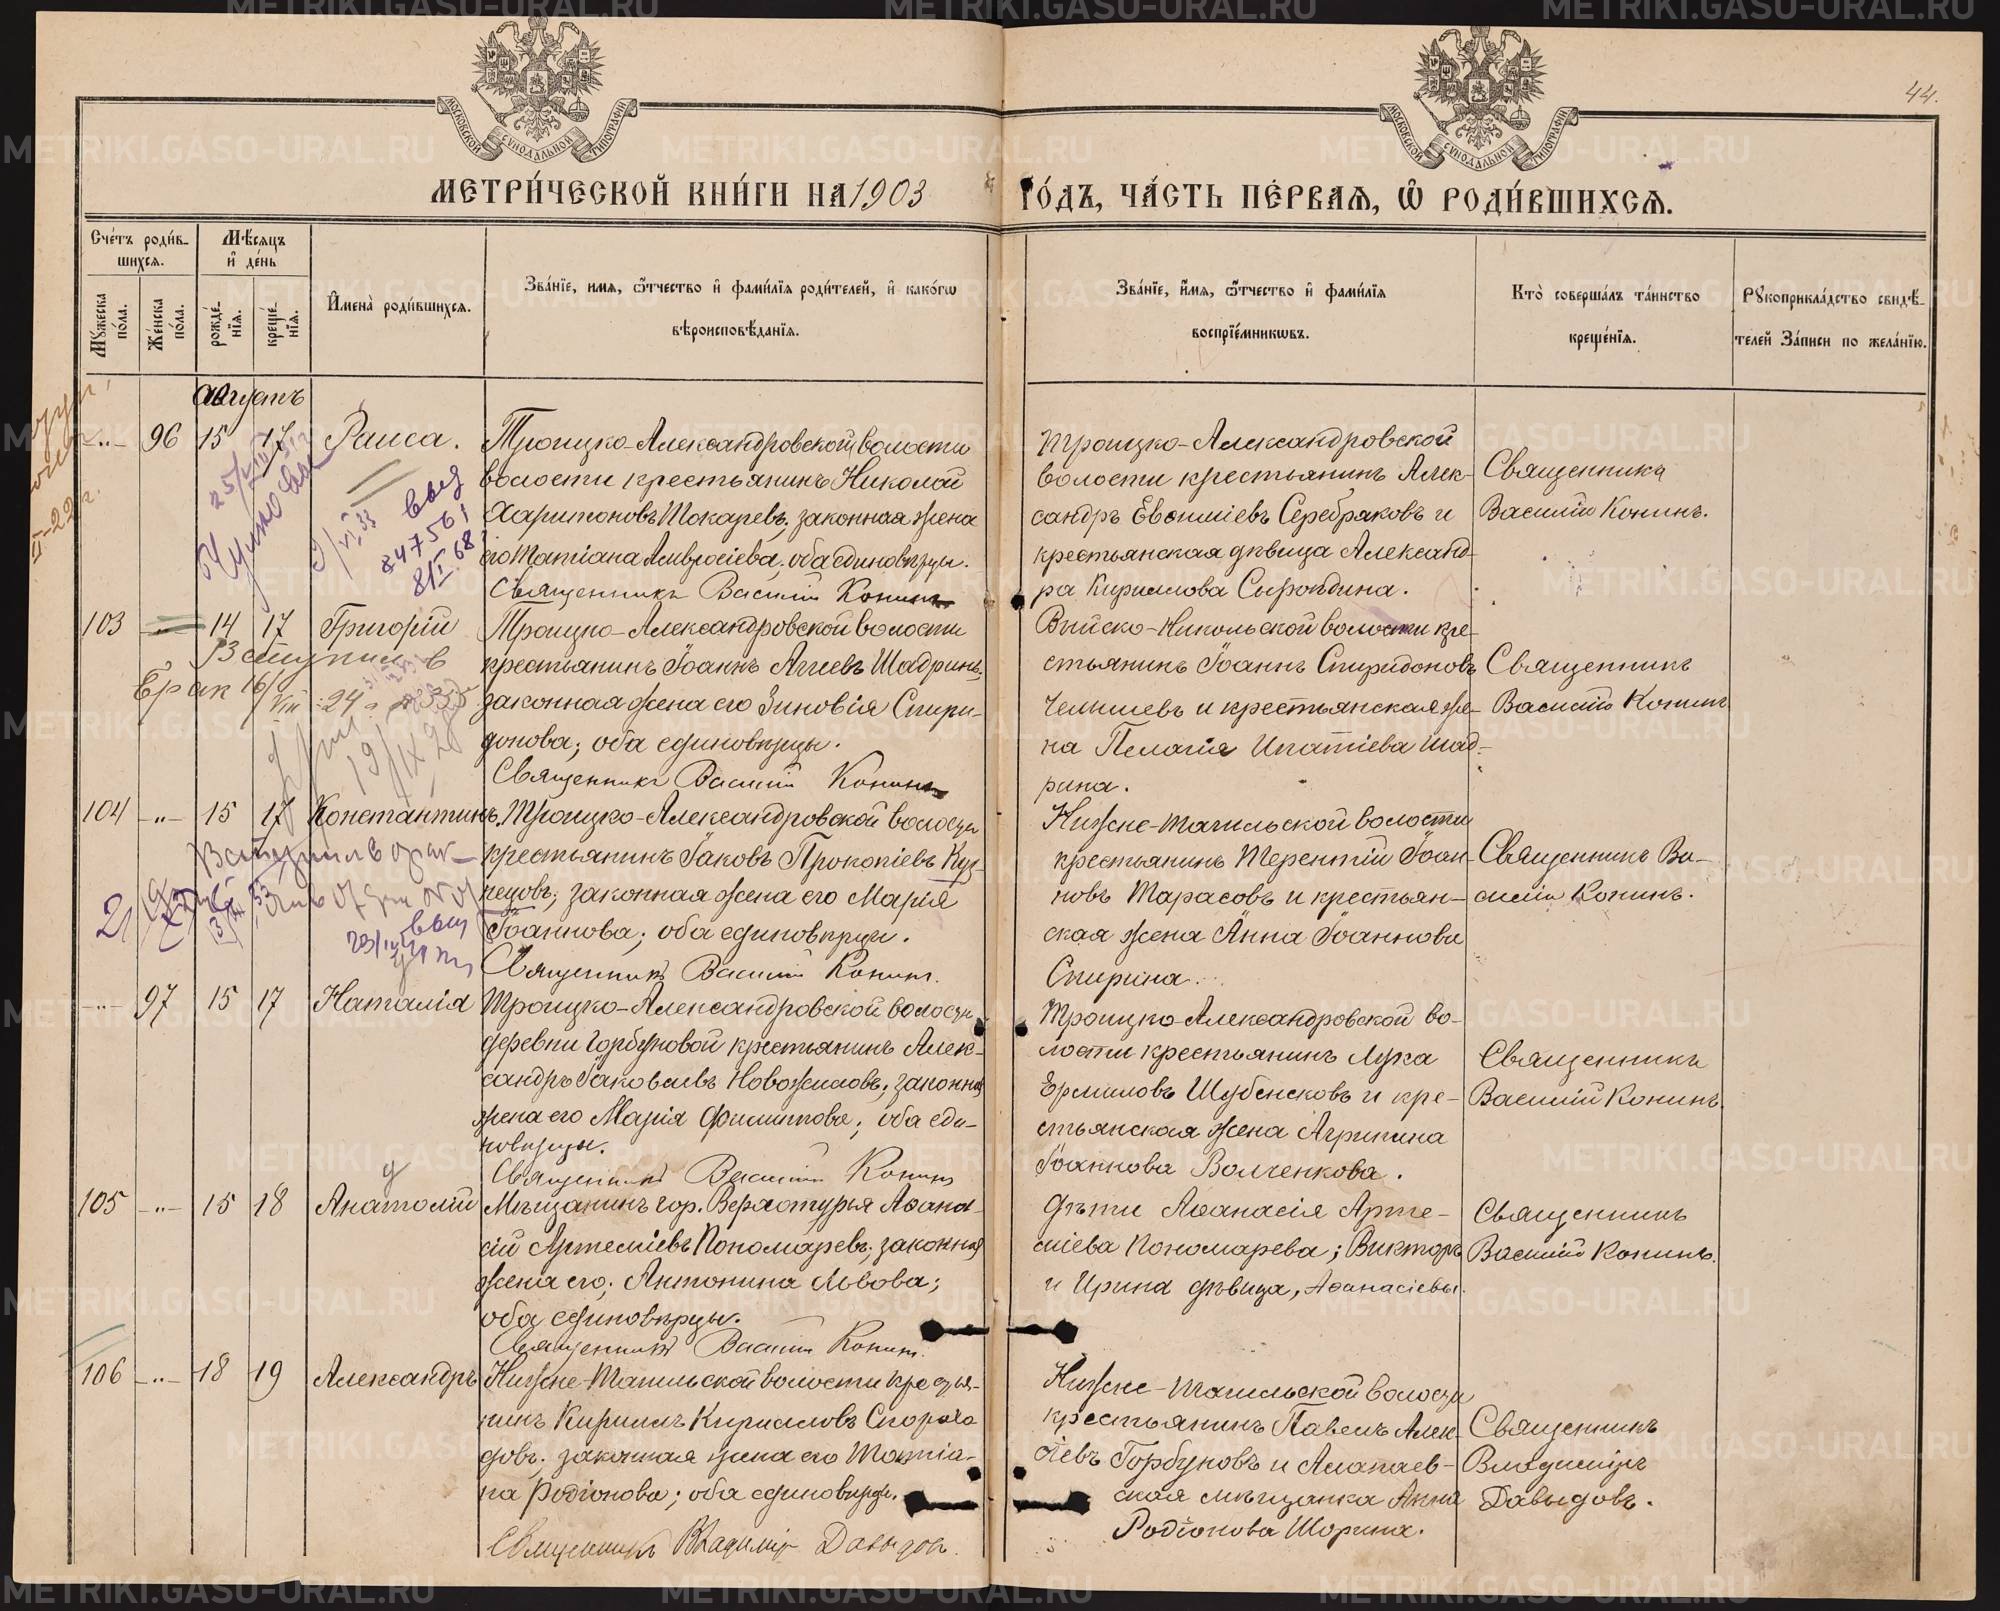 44.
МОСКОВСКОЙ СѴНОДАЛЬНОЙ ТИПОГРАФІИ
МОСКОВСКОЙ СѴНОДАЛЬНОЙ ТИПОГРАФІИ
МЕТРИ́ЧЕСКОЙ КНИ́ГИ НА 1903 ГО́ДЪ, ЧА́СТЬ ПЕ́РВАѦ, Ѽ РОДИ́ВШИХСѦ.
Сче́тъ роди́в-
шихсѧ.
Мꙋжеска по́ла.
Же́нска по́ла.
Мѣ́сѧцъ
и҆ де́нь
рожде́-
нїѧ.
креще́-
нїѧ.
И҆мена̀ роди́вшихсѧ.
Зва́нїе, имѧ, ѻ҆́тчество и҆ фами́лїѧ роди́телей, и҆ како́гѡ
вѣроисповѣ́данїѧ.
Зва́нїе, и҆́мѧ, ѻ҆́тчество и҆ фами́лїѧ
воспрїе́мникѡвъ.
Кто̀ соверша́лъ та́инство
креще́нїѧ.
Рꙋкоприкла́дство свидѣ́-
телей За́писи по жела́нїю.
Августъ
-"- 96 15 17 Раиса.
Троицко-Александровской волости
волости крестьянинъ Николай
Харитоновъ Токаревъ; законная жена
его Татіана Амвросіева; оба единовѣрцы.
Священникъ Василій Конинъ
Троицко-Александровской
волости крестьянинъ Алек-
сандръ Евсиміевъ Серебряковъ и
крестьянская дѣвица Александ-
ра Кириллова Сыропѣдина.
Священникъ
Василій Конинъ.
103 -"- 14 17 Григорій
Вступил в
брак 16/VIII 24 г.
Троицко-Александровской волости
крестьянинъ Іоаннъ Аггеевъ Шадринъ,
законная жена его Зиновія Спири-
донова; оба единовѣрцы.
Священникъ Василій Конинъ
Выйско-Никольской волости кре-
стьянинъ Іоаннъ Спиридоновъ
Челышевъ и крестьянская же-
на Пелагія Ипатіева Шад-
рина.
Священникъ
Василій Конинъ
104 -"- 15 17 Константинъ.
Вступил в брак
Троицко-Александровской волости
крестьянинъ Іаковъ Прокопіевъ Куз-
нецовъ; законная жена его Марія
Іоаннова; оба единовѣрцы.
Священникъ Василій Конинъ.
Нижне-Тагильской волости
крестьянинъ Терентій Іоан-
новъ Тарасовъ и крестьян-
ская жена Анна Іоаннова
Спирина.
Священникъ Ва-
силій Конинъ.
-"- 97 15 17 Наталія
Троицко-Александровской волости
деревни Горбуновой крестьянинъ Алек-
сандръ Іаковлевъ Новожиловъ; законная
жена его Марія Филиппова; оба еди-
новѣрцы.
Священникъ Василій Конинъ
Троицко-Александровской во-
лости крестьянинъ Лука
Ермиловъ Шубенсковъ и кре-
стьянская жена Агрипина
Іоаннова Волченкова.
Священникъ
Василій Конинъ.
105 -"- 15 18 Анатолій
Мѣщанинъ гор. Верхотурья Аѳана-
сій Артеміевъ Пономаревъ; законная
жена его; Антонина Львова;
оба единовѣрцы.
Священникъ Василій Конинъ.
Дѣти Аѳанасія Арте-
міева Пономарева; Викторъ
и Ирина дѣвица, Аѳанасіевы.
Священникъ
Василій Конинъ.
106 -"- 18 19 Александръ
Нижне-Тагильской волости крестья-
нинъ Кириллъ Кирилловъ Скорохо
довъ; законная жена его Татіа-
на Родіонова; оба единовѣрцы.
Священникъ Владиміръ Давыдовъ.
Нижне-Тагильской волости
крестьянинъ Павелъ Алек-
сіевъ Горбуновъ и Алапаев-
ская мѣщанка Анна
Родіонова Шорина.
Священникъ
Владиміръ
Давыдовъ.
METRIKI.GASO-URAL.RU